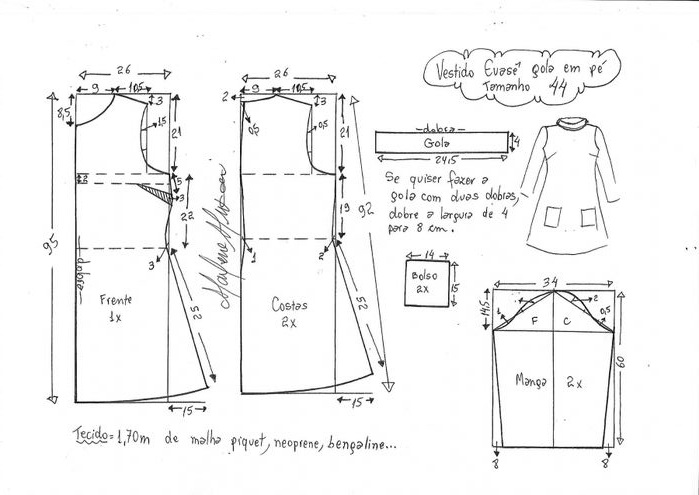 Vestido Evasê gola em pé
Tamanho 44
26
9
10,5
3
8,5
1,5
21
2
5
3
22
95
3
dobra
Frente
1x
52
15
26
9
10,5
2
3
0,5
0,5
21
19
92
1
2
Costas
2x
52
15
Marlene Mukai
dobra
Gola
4
24,5
Se quiser fazer a
gola com duas dobras,
dobre a largura de 4
para 8 cm.
14
Bolso
2x
15
34
14,5
1
2
0,5
F
C
Manga
2x
60
8
8
Tecido = 1,70m de malha piquet, neoprene, bengaline...